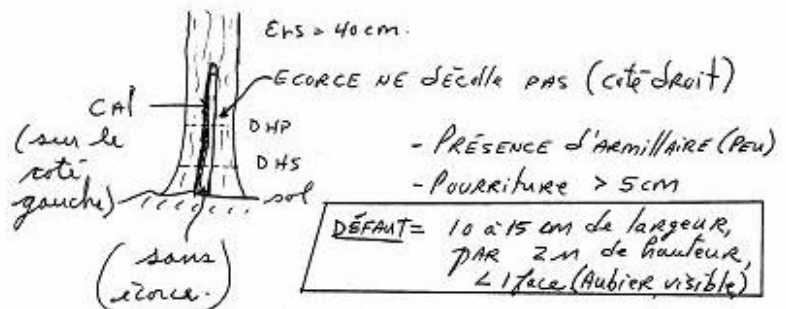 Ehs = 40 cm.
ECORCE NE décolle PAS (coté droit)
CAl
(sur le
coté
gauche)
DHP
DHS
sol
(sans
écorce.)
- PRÉSENCE d'ARMillAIRE (PEU)
- POURRITURE > 5 cm
DÉFAUT = 10 à 15 cm de largeur,
PAR 2 m de hauteur,
< 1 face (Aubier visible)